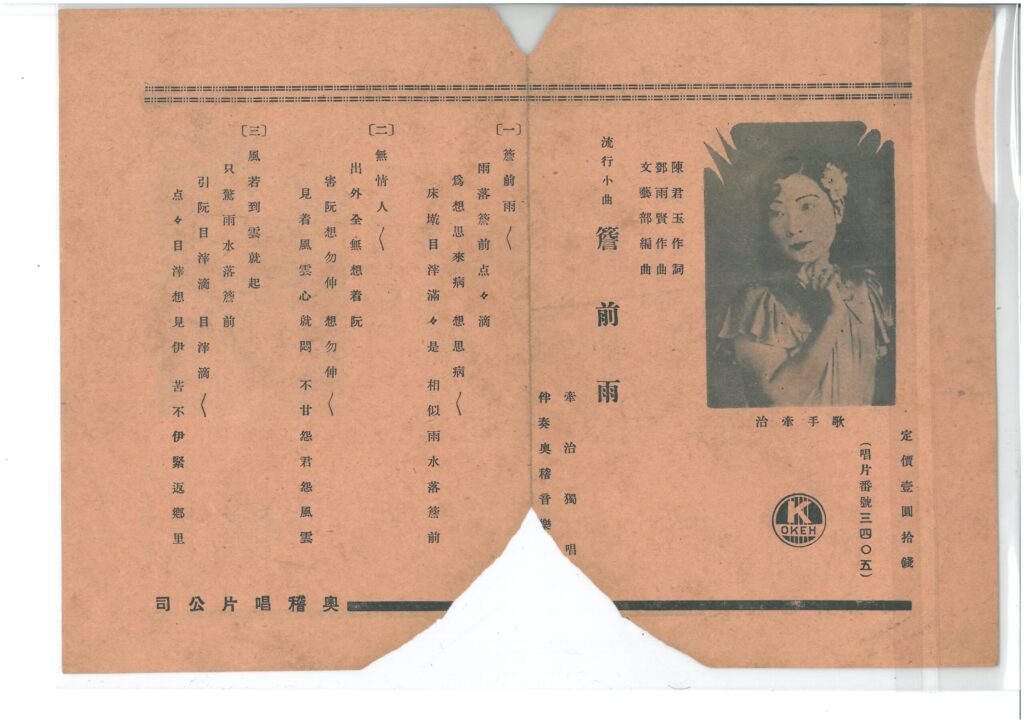 定價壹圓拾錢
(唱片番號三四〇五)
歌手牽治
K
OKEH
陳君玉作詞
鄧雨賢作曲
文藝部編曲
流行小曲 簷前雨
牽治獨唱
伴奏奧稽音樂
〔一〕簷前雨〱
雨落簷前点々滴
爲想思來病 想思病〱
床墘目滓滿々是 相似雨水落簷前
〔二〕無情人〱
出外全無想着阮
害阮想勿伸 想勿伸〱
見着風雲心就悶 不甘怨君怨風雲
〔三〕風若到雲就起
只驚雨水落簷前
引阮目滓滴 目滓滴〱
点々目滓想見伊 苦不伊緊返鄉里
奧稽唱片公司